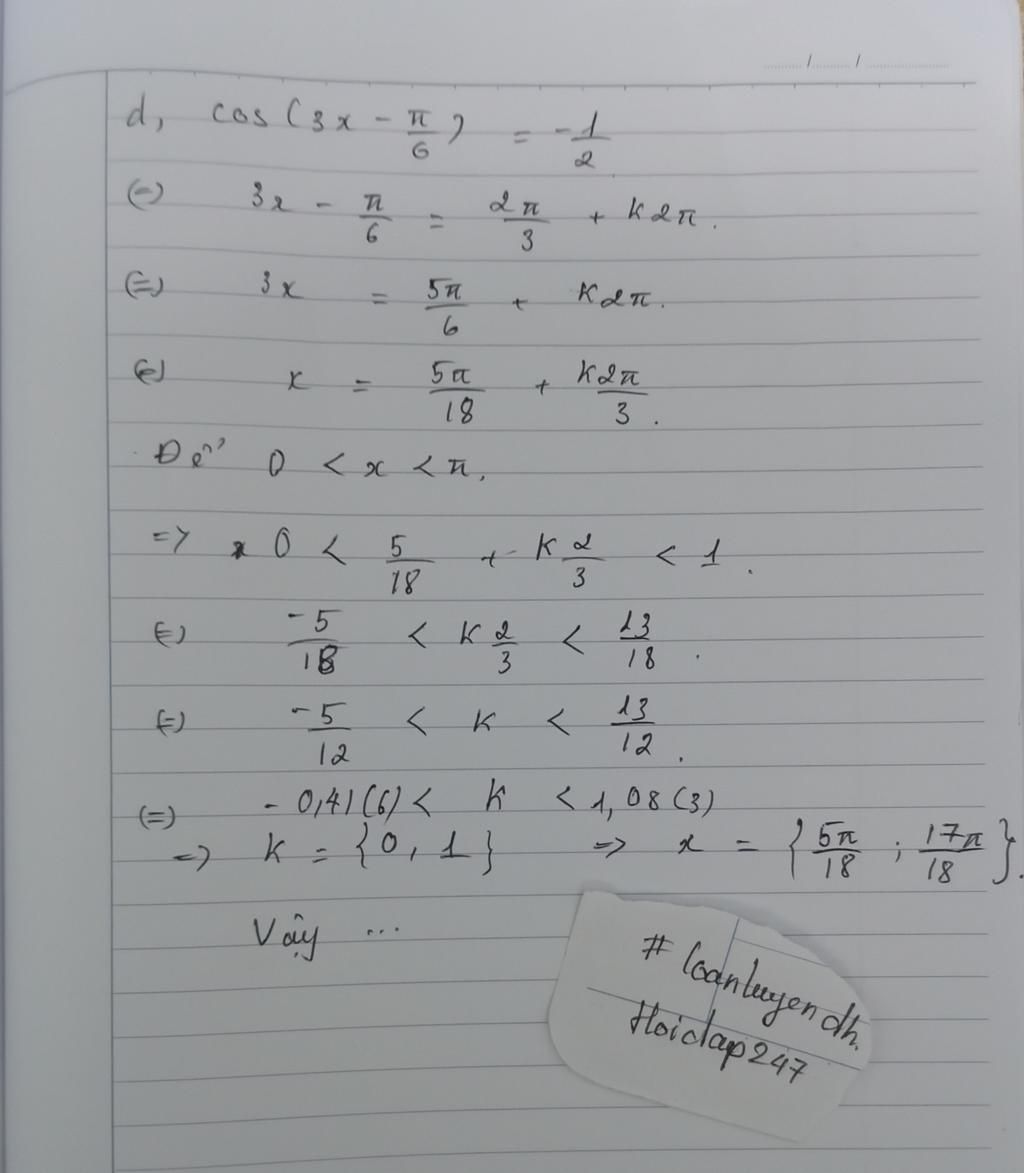 ..../..../........
d, cos(3x - π/6) = -1/2
(=) 3x - π/6 = 2π/3 + k2π.
(=) 3x = 5π/6 + k2π.
(=) x = 5π/18 + k2π/3.
Để 0 < x < π,
=> 0 < 5/18 + k 2/3 < 1.
(=) -5/18 < k 2/3 < 13/18.
(=) -5/12 < k < 13/12.
(=) -0,41(6) < k < 1,08(3)
=> k = {0, 1} => x = {5π/18 ; 17π/18}.
Vậy ...
# loanluyendh.
Hoidap247